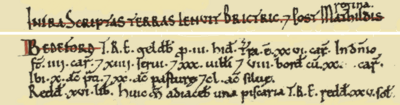 regina.
INFRA SCRIPTAS TERRAS TENUIT BRICTRIC, 7 Post Mathildis
BEDEFORD T.R.E. geldb p. III. hid. Tra. e. XXVI. car. In dnio
st. IIII. car. 7 XIIII. serui. 7 XXX. uilli 7 VIII. bord. cu. XX. car.
Ibi. X. ac pti. 7 XX. ac pasture 7 CL. ac silue.
Redd. XVI. lib. Huic M adiacet una piscaria. T.R.E. redd. XXV. sol.